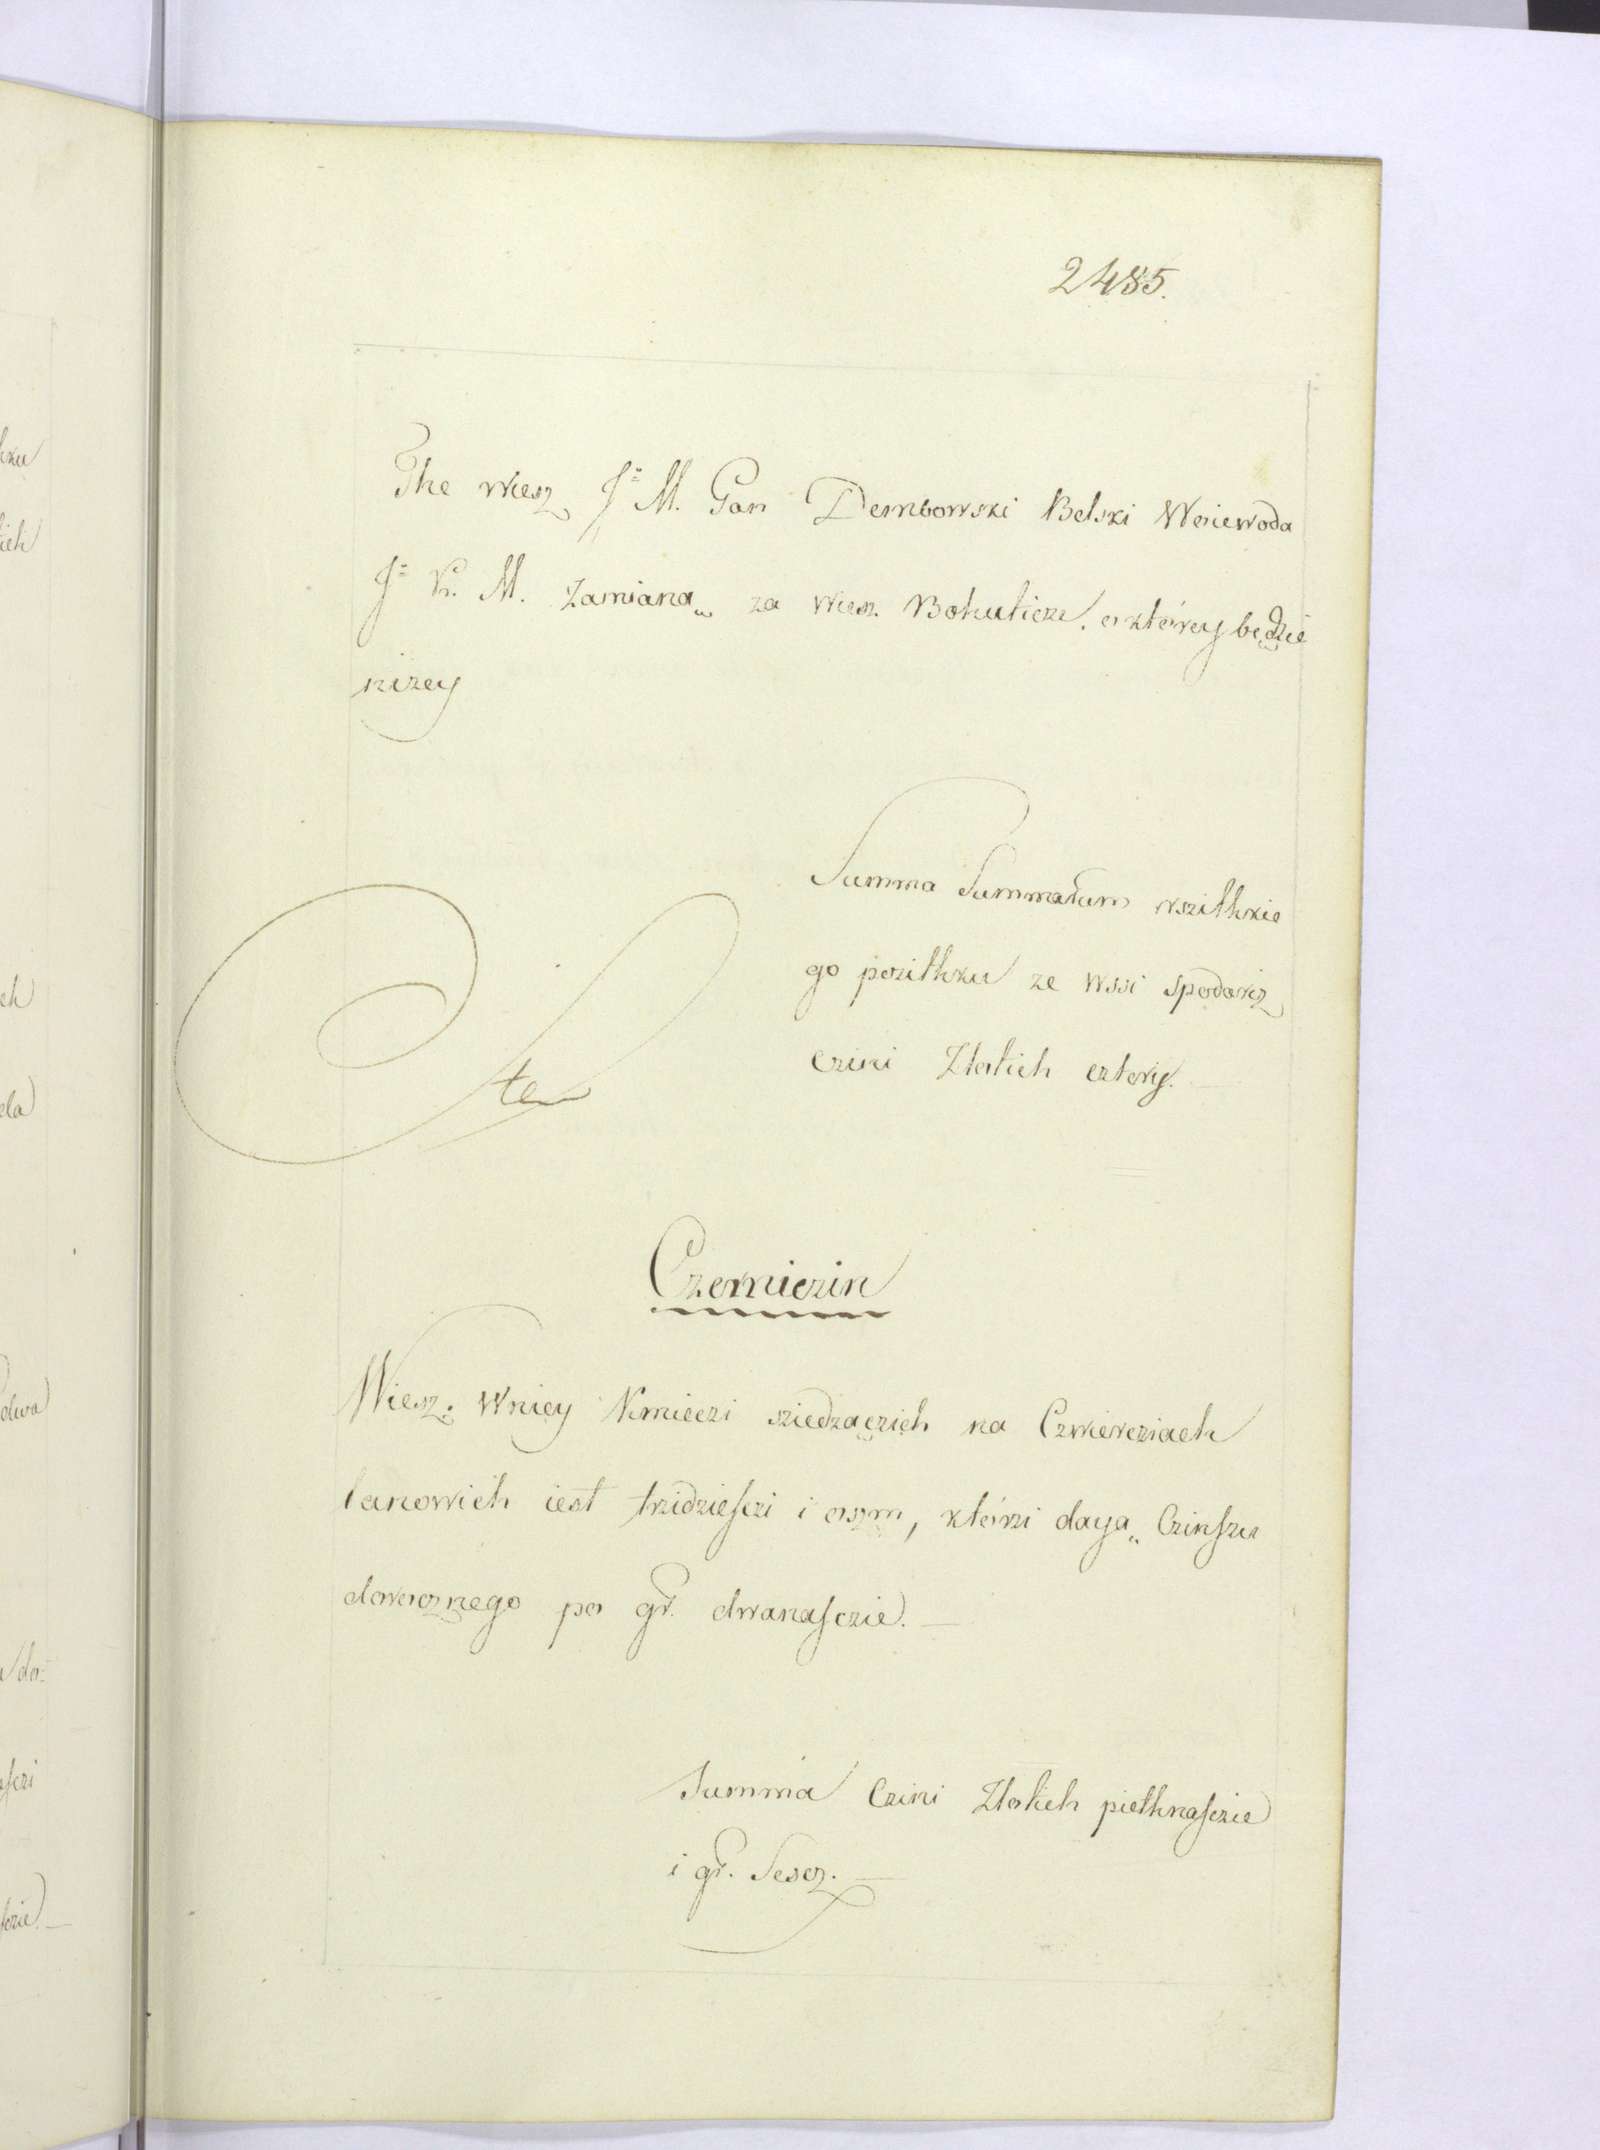 2485.
The wiesz J= M. Pan Dembowski Belski Woiewoda
J= K. M. zamianą za wiesz Bohuticze, o którey będzie
nizey
Summa Summarum wszithkie
go pozithku ze wssi Spodarisz
czini Złotich cztery.
Czerniczin
Wiesz. Wniey Kmieczi sziedzączich na Czwiercziach
lanowich iest trzidziesczi i oszm, którzi dayą Czinszu
dorocznego po gr. dwanasczie.
Summa Czini Złotich piethnasczie
i gr. Sescz.